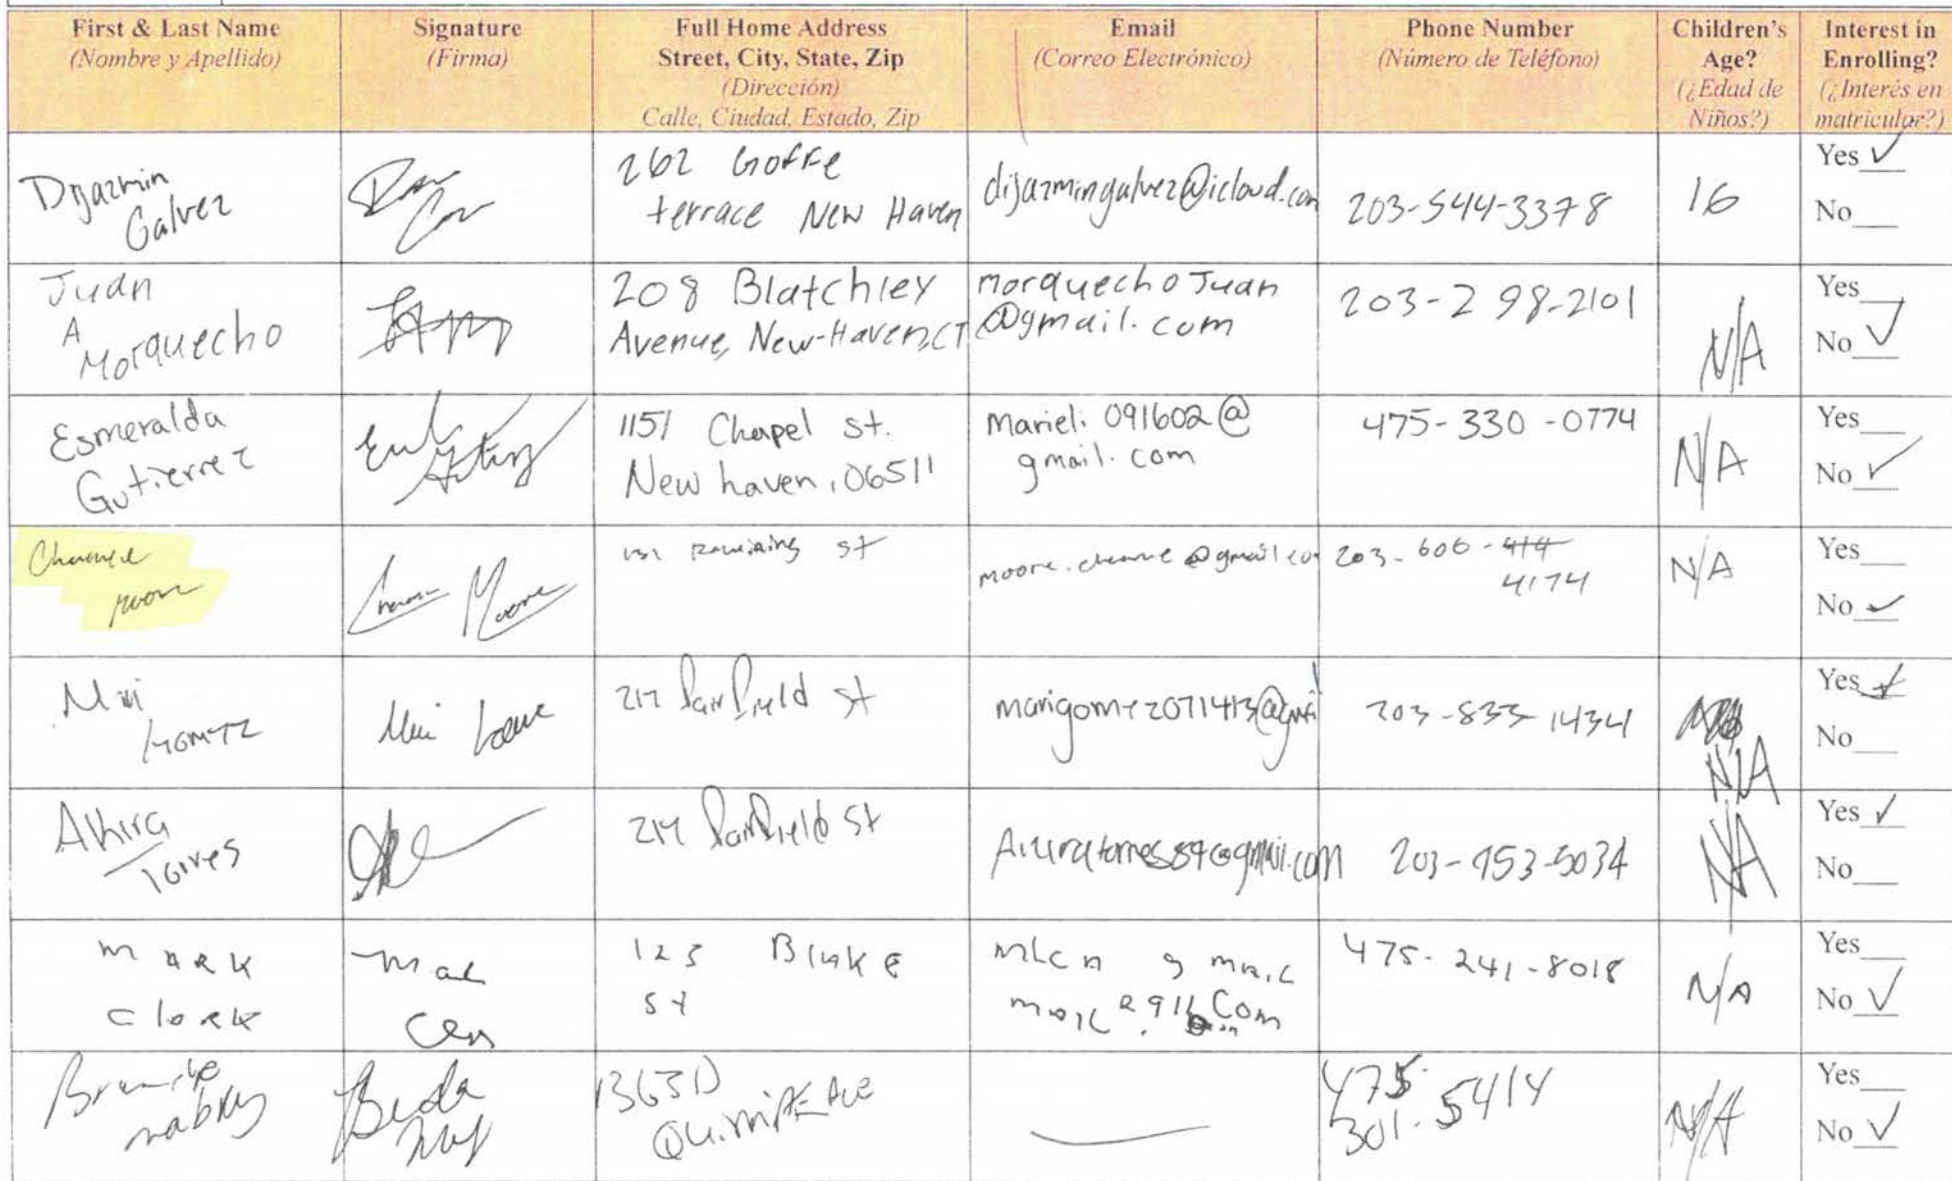 First & Last Name
(Nombre y Apellido)
Signature
(Firma)
Full Home Address
Street, City, State, Zip
(Dirección)
Calle, Ciudad, Estado, Zip
Email
(Correo Electrónico)
Phone Number
(Número de Teléfono)
Children's
Age?
(¿Edad de
Niños?)
Interest in
Enrolling?
(¿Interés en
matricular?)
Dijazmin
Galvez
262 Goffe
terrace New Haven
dijazmingalvez@icloud.com
203-544-3378
16
Yes ✓
No
Juan
A
Morquecho
208 Blatchley
Avenue, New-Haven, CT
morquechoJuan
@gmail.com
203-298-2101
N/A
Yes
No ✓
Esmeralda
Gutierrez
1151 Chapel st.
New haven, 06511
Marieli091602@
gmail.com
475-330-0774
N/A
Yes
No ✓
Moore
st
203-606-414
4174
N/A
Yes
No ✓
Gomez
217 fairfield st
marigomez071413@gmail
203-833-1434
N/A
Yes ✓
No
Torres
fairfield st
203-953-5034
N/A
Yes ✓
No
mark
clark
123 Blake
st
475-241-8018
N/A
Yes
No ✓
mabry
475
301-5414
N/A
Yes
No ✓